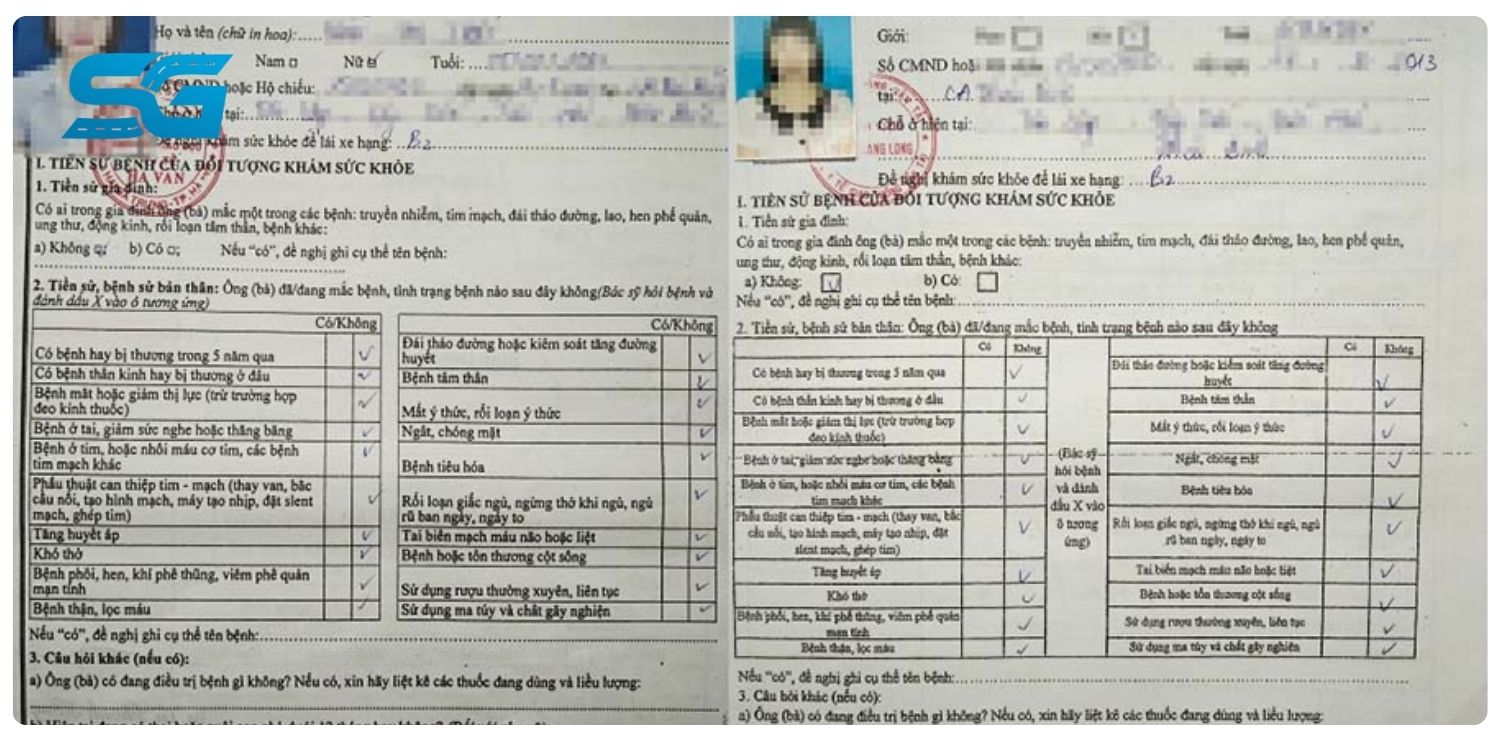 SG
Họ và tên (chữ in hoa):
Nam
Nữ
Tuổi:
CMND hoặc Hộ chiếu:
tại:
khám sức khỏe để lái xe hạng: B2
HÀ VAN
I. TIỀN SỬ BỆNH CỦA ĐỐI TƯỢNG KHÁM SỨC KHỎE
1. Tiền sử gia đình:
Có ai trong gia đình ông (bà) mắc một trong các bệnh: truyền nhiễm, tim mạch, đái tháo đường, lao, hen phế quản,
ung thư, động kinh, rối loạn tâm thần, bệnh khác:
a) Không ; b) Có ; Nếu “có”, đề nghị ghi cụ thể tên bệnh:
2. Tiền sử, bệnh sử bản thân: Ông (bà) đã/đang mắc bệnh, tình trạng bệnh nào sau đây không(Bác sỹ hỏi bệnh và
đánh dấu X vào ô tương ứng)
Có/Không
Có bệnh hay bị thương trong 5 năm qua
Có bệnh thần kinh hay bị thương ở đầu
Bệnh mắt hoặc giảm thị lực (trừ trường hợp
đeo kính thuốc)
Bệnh ở tai, giảm sức nghe hoặc thăng bằng
Bệnh ở tim, hoặc nhồi máu cơ tim, các bệnh
tim mạch khác
Phẫu thuật can thiệp tim - mạch (thay van, bắc
cầu nối, tạo hình mạch, máy tạo nhịp, đặt slent
mạch, ghép tim)
Tăng huyết áp
Khó thở
Bệnh phổi, hen, khí phế thũng, viêm phế quản
mạn tính
Bệnh thận, lọc máu
Có/Không
Đái tháo đường hoặc kiểm soát tăng đường
huyết
Bệnh tâm thần
Mất ý thức, rối loạn ý thức
Ngất, chóng mặt
Bệnh tiêu hóa
Rối loạn giấc ngủ, ngừng thở khi ngủ, ngủ
rũ ban ngày, ngáy to
Tai biến mạch máu não hoặc liệt
Bệnh hoặc tổn thương cột sống
Sử dụng rượu thường xuyên, liên tục
Sử dụng ma túy và chất gây nghiện
Nếu “có”, đề nghị ghi cụ thể tên bệnh:
3. Câu hỏi khác (nếu có):
a) Ông (bà) có đang điều trị bệnh gì không? Nếu có, xin hãy liệt kê các thuốc đang dùng và liều lượng:
Giới:
Số CMND hoặ
013
tại: CA
Chỗ ở hiện tại:
ANG LONG
Đề nghị khám sức khỏe để lái xe hạng: B2
I. TIỀN SỬ BỆNH CỦA ĐỐI TƯỢNG KHÁM SỨC KHỎE
1. Tiền sử gia đình:
Có ai trong gia đình ông (bà) mắc một trong các bệnh: truyền nhiễm, tim mạch, đái tháo đường, lao, hen phế quản,
ung thư, động kinh, rối loạn tâm thần, bệnh khác:
a) Không: b) Có:
Nếu “có”, đề nghị ghi cụ thể tên bệnh:
2. Tiền sử, bệnh sử bản thân: Ông (bà) đã/đang mắc bệnh, tình trạng bệnh nào sau đây không
Có Không
Có bệnh hay bị thương trong 5 năm qua
Có bệnh thần kinh hay bị thương ở đầu
Bệnh mắt hoặc giảm thị lực (trừ trường hợp
đeo kính thuốc)
Bệnh ở tai, giảm sức nghe hoặc thăng bằng
Bệnh ở tim, hoặc nhồi máu cơ tim, các bệnh
tim mạch khác
Phẫu thuật can thiệp tim - mạch (thay van, bắc
cầu nối, tạo hình mạch, máy tạo nhịp, đặt
slent mạch, ghép tim)
Tăng huyết áp
Khó thở
Bệnh phổi, hen, khí phế thũng, viêm phế quản
mạn tính
Bệnh thận, lọc máu
(Bác sỹ
hỏi bệnh
và đánh
dấu X vào
ô tương
ứng)
Có Không
Đái tháo đường hoặc kiểm soát tăng đường
huyết
Bệnh tâm thần
Mất ý thức, rối loạn ý thức
Ngất, chóng mặt
Bệnh tiêu hóa
Rối loạn giấc ngủ, ngừng thở khi ngủ, ngủ
rũ ban ngày, ngáy to
Tai biến mạch máu não hoặc liệt
Bệnh hoặc tổn thương cột sống
Sử dụng rượu thường xuyên, liên tục
Sử dụng ma túy và chất gây nghiện
Nếu “có”, đề nghị ghi cụ thể tên bệnh:
3. Câu hỏi khác (nếu có):
a) Ông (bà) có đang điều trị bệnh gì không? Nếu có, xin hãy liệt kê các thuốc đang dùng và liều lượng: